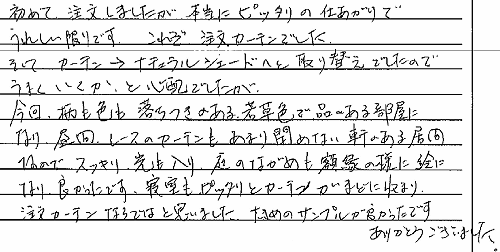 初めて、注文しましたが、本当にピッタリの仕あがりで
うれしい限りです。これぞ注文カーテンでした
そして カーテン→ナチュラルシェードへと取り替えでしたので
うまくいくか、と心配でしたが、
今回、柄も色も落ちつきのある若草色で品のある部屋に
なり 昼間、レースのカーテンもあまり閉めない軒のある居間
なので スッキリ、光も入り、庭のながめも額縁の様に絵に
なり、良かったです、寝室もピッタリとカーテンがまどに収まり、
注文カーテンならではと思いました、大きめのサンプルが良かったです
ありがとうございました。